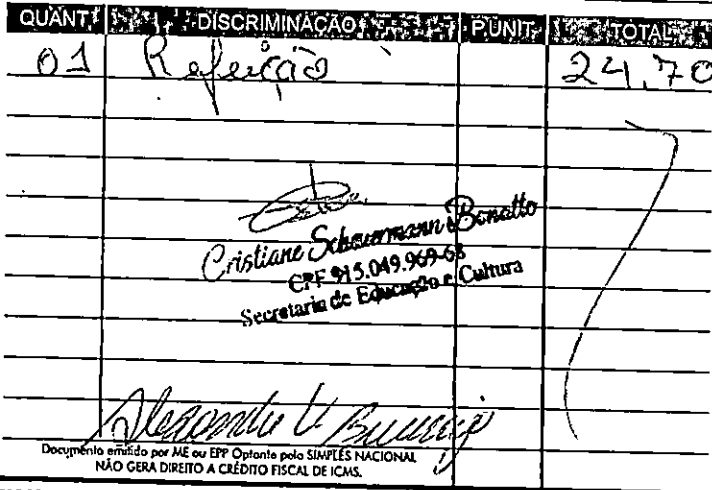 QUANT. DISCRIMINAÇÃO P.UNIT. TOTAL
01 Refeição 24,70
Cristiane Scheuermann Bonatto
CPF 915.049.969-68
Secretaria de Educação e Cultura
Documento emitido por ME ou EPP Optante pelo SIMPLES NACIONAL
NÃO GERA DIREITO A CRÉDITO FISCAL DE ICMS.